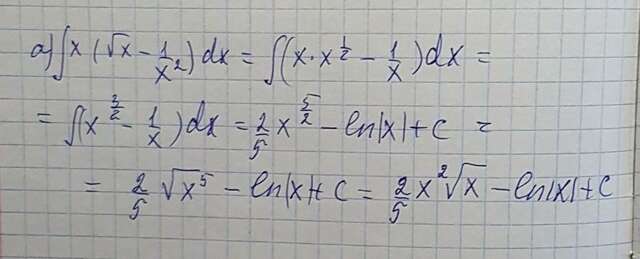 а) ∫x (√x - 1/x²) dx = ∫(x · x^(1/2) - 1/x) dx =
= ∫(x^(3/2) - 1/x) dx = 2/5 x^(5/2) - ln|x| + c =
= 2/5 √x⁵ - ln|x| + c = 2/5 x²√x - ln|x| + c